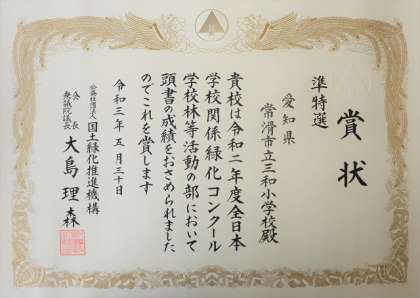 賞状
準特選
愛知県
常滑市立三和小学校殿
貴校は令和二年度全日本
学校関係緑化コンクール
学校林等活動の部において
頭書の成績をおさめられました
のでこれを賞します
令和三年五月三十日
公益社団法人 国土緑化推進機構
会長
衆議院議長 大島理森